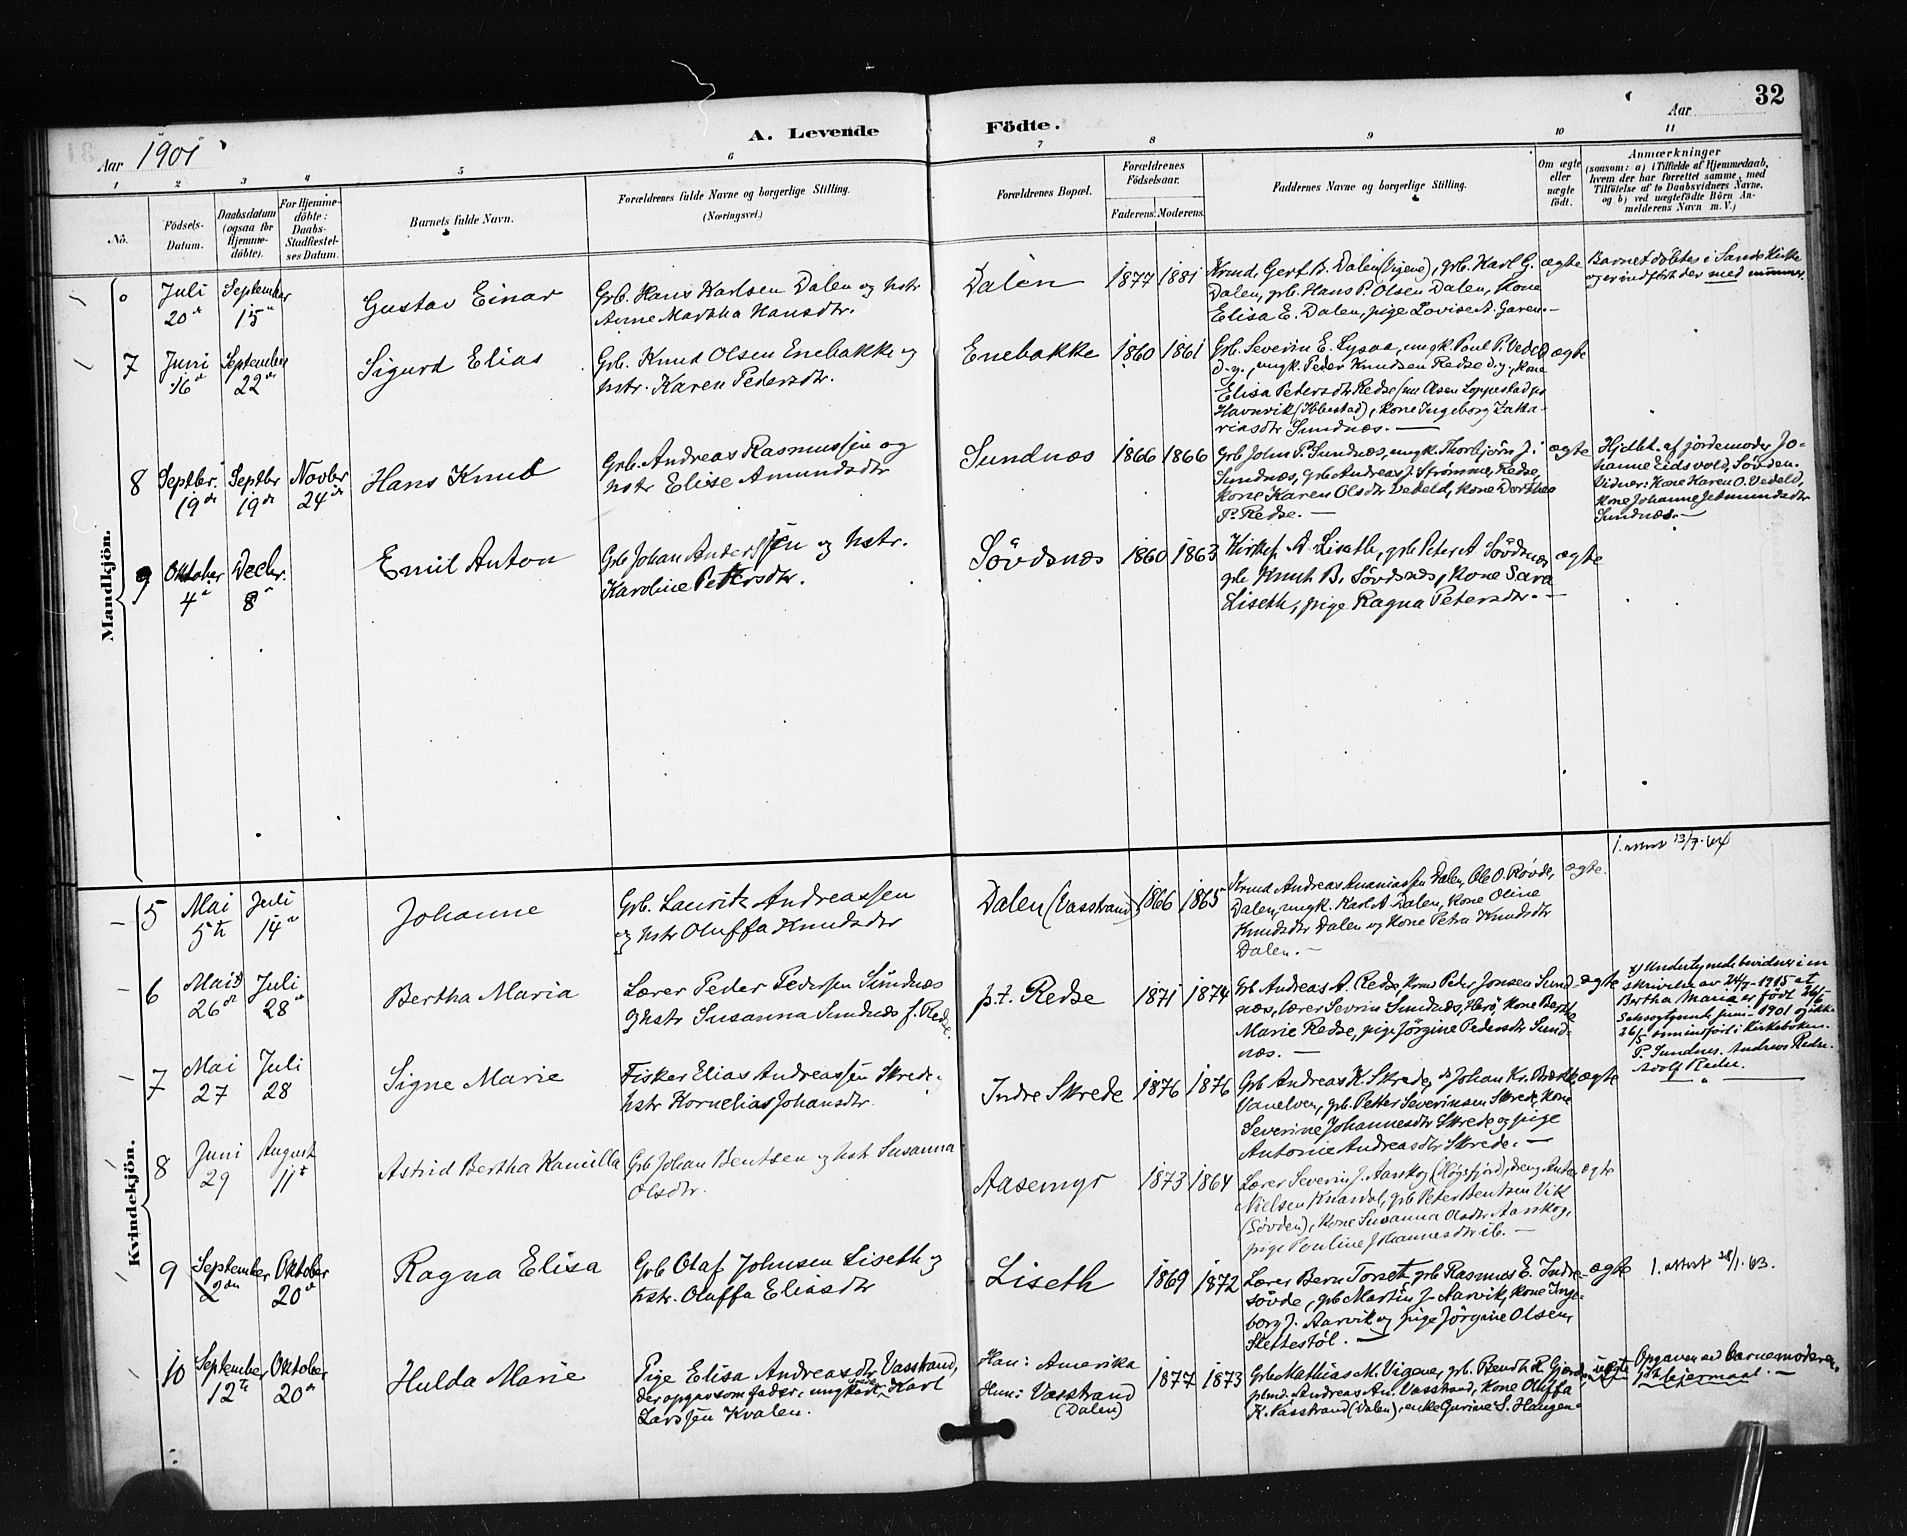 32
A. Levende Födte.
Aar 1901
Aar
1 2 3 4 5 6 7 8 9 10 11
Nô.
Födsels-
Datum.
Daabsdatum
(ogsaa for
Hjemme-
döbte).
For Hjemme-
döbte:
Daabs-
Stadfæstel-
ses Datum.
Barnets fulde Navn.
Forældrenes fulde Navne og borgerlige Stilling.
(Næringsvei.)
Forældrenes Bopæl.
Forældrenes
Födselsaar.
Faderens. Moderens.
Faddernes Navne og borgerlige Stilling.
Om ægte
eller
uægte
födt.
Anmærkninger
(saasom: a) i Tilfælde af Hjemmedaab,
hvem der har forrettet samme, med
Tilföielse af to Daabsvidners Navne,
og b) ved uægtefödte Börn An-
melderens Navn m. V.)
Mandkjön.
0
Juli
20de
September
15de
Gustav Einar
Grb. Hans Karlsen Dalen og hstr
Anne Martha Hansdtr.
Dalen
1877 1881
Krmd. Gert B. Dalen (Vigene), grb. Karl G.
Dalen, grb. Hans P. Olsen Dalen, kone
Elisa E. Dalen, pige Lovise A. Garen.—
ægte
Barnet döbtes i Sande Kirke
og er indfört der med nummer.
7
Juni
16de
September
22de
Sigurd Elias
Grb. Knud Olsen Enebakke og
hstr. Karen Pedersdtr.
Enebakke
1860 1861
Grb. Severin E. Lysaa, ungk. Poul P. Vedeld
d.y., ungk. Peder Knudsen Redse d.y., kone
Elisa Pedersdtr Redse
Havnvik (Ibbestad), kone Ingeborg Zaka-
riasdtr Sundnæs.—
ægte
8
Septbr.
19de
Septbr
19de
Novbr
24de
Hans Knud
Grb. Andreas Rasmussen og
hstr Elise Amundsdtr
Sundnæs
1866 1866
Grb John P. Sundnæs, ungk. Thorbjörn J.
Sundnæs, grb Andreas J. Strömme, Redse,
kone Karen Olsdtr Vedeld, kone Dorthea
P. Redse.—
ægte
Hjdbt. af jordemoder Jo-
hanne Eidsvold, Sövden.
Vidner: Kone Karen O. Vedeld,
kone Johanne Jetmundsdtr
Sundnæs.—
9
Oktober
4de
Decbr.
8de
Emil Anton
Grb Johan Anderssen og hstr.
Karoline Petersdtr.
Sövdsnæs
1860 1863
Kirkes. A. Liseth, grb Peter A Sövdsnæs
grb Knut B. Sövdsnæs, kone Sara
Liseth, pige Ragna Petersdtr.—
ægte
Kvindekjön.
5
Mai
5te
Juli
14de
Johanne
Grb. Lauritz Andreassen
og hstr Oluffa Knudsdtr
Dalen (Vasstrand)
1866 1865
Krmd Andreas Ananiassen Dalen, Ole O. Rövde,
Dalen, ungk. Karl A. Dalen, kone Oline
Knudsdtr Dalen og kone Petra Knudsdtr
Dalen.—
ægte.
1. attest 13/7. 44
6
Mai
26de
Juli
28de
Bertha Maria
Lærer Peder Pedersen Sundnæs
og hstr Susanna Sundnæs f. Redse.
p.t. Redse
1871 1874
Grb Andreas A. Redse, krmd Peder Jonsen Sund-
næs, lærer Sevrin Sundnæs, Herö, kone Berthe
Marie Redse, pige Jörgine Pedersdtr Sund-
næs.—
ægte
x) Undertegnede bevidner i en
skrivelse av 24/7 1915 at
Bertha Maria er födt 26/6
seksogtyvende juni 1901 og ikke
26/5 som indfört i kirkeboken.
P. Sundnes. Andreas Redse.
Adolf Redse.
7
Mai
27
Juli
28
Signe Marie
Fisker Elias Andreassen Skrede.
hstr Kornelia Johansdtr.
Indre Skrede
1876 1876
Grb Andreas K. Skrede, do Johan Kr. Brædtke,
Vanelven, grb. Petter Severinsen Skrede, kone
Severine Johannesdtr Skrede og pige
Antonie Andreasdtr Skrede.—
ægte
8
Juni
29
August
11te
Astrid Bertha Kamilla
Grb Johan Bentsen og hstr Susanna
Olsdtr.
Aasemyr
1873 1864
Lærer Severin J. Aarskog (Högsfjord), dreng Anton
Nielsen Knardal, grb Peter Bentsen Vik
(Sövden), kone Susanna Olsdtr Aarskog,
pige Pauline Johannesdtr ib.—
ægte
9
September
2den
Oktober
20de
Ragna Elisa
Grb Olaf Johnsen Liseth og
hstr. Oluffa Eliasdtr
Liseth
1869 1872
Lærer Bern Torset, grb Rasmus E. Indre-
sövde, grb Martin J. Aarvik, kone Inge-
borg J. Aarvik og pige Jörgine Olsen,
Slettestöl.—
ægte
1. attest 28/1. 63.
10
September
12te
Oktober
20de
Hulda Marie
Pige Elisa Andreasdtr Vasstrand,
der opgav som fader: ungkarl, Karl
Larssen Kvalen.
Han: Amerika
Hun: Vasstrand
(Dalen)
1877 1873
Grb Mathias M. Vigene, grb. Bendt R. Gjerde,
grbmd. Andreas An. Vasstrand, kone Oluffa
K. Vasstrand (Dalen), enke Gurine S. Haugen
uægte
Opgaven av barnemoderen.
1ste leiermaal.—